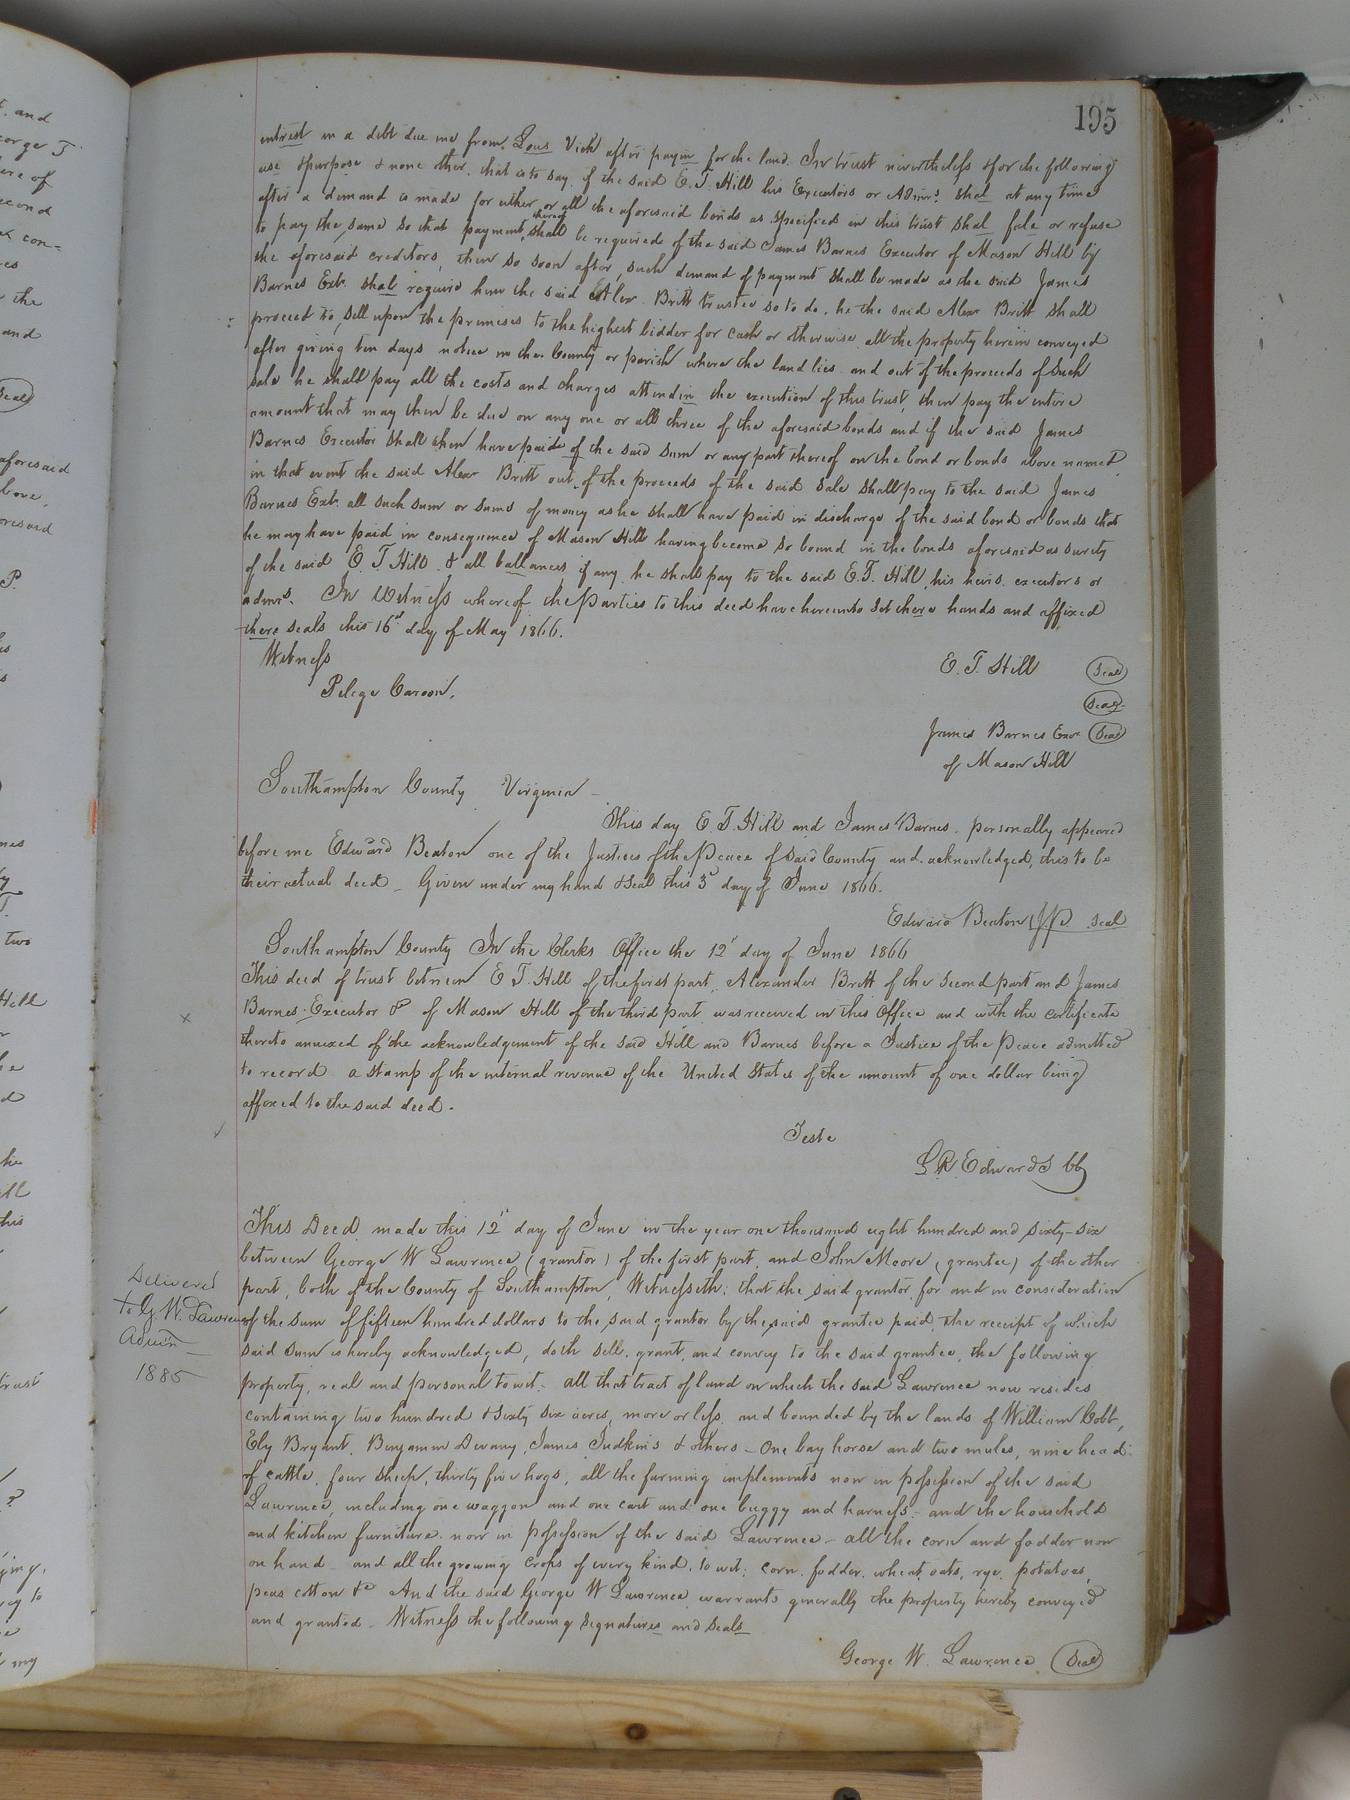 195
interest in a debt due me from Lous Vick after payin for the land. In trust nevertheless & for the following
use & purpose & none other, that is to say, if the said E. T. Hill his Executors or Admrs. shal at any time
after a demand is made for either or all the aforesaid bonds as specified in this trust shal fale or refuse
to pay the same so that payment thereof shall be required of the said James Barnes Executor of Mason Hill by
the aforesaid creditors, then so soon after such demand of payment shall be made as the said James
Barnes Exr. shal require him the said Alex Britt trustee so to do, he the said Alex Britt shall
proceed to sell upon the premises to the highest bidder for cash or otherwise all the property herein conveyed
after giving ten days notice in the County or parish where the land lies and out of the proceeds of such
sale he shall pay all the costs and charges attendin the execution of this trust, then pay the intire
amount that may then be due on any one or all three of the aforesaid bonds and if the said James
Barnes Executor shall then have paid of the said sum or any part thereof on the bond or bonds above named
in that event the said Alex Britt out of the proceeds of the said sale shall pay to the said James
Barnes Exr. all such sum or sums of money as he shall have paid in discharge of the said bond or bonds that
he may have paid in consequence of Mason Hill having become so bound in the bonds aforesaid as surity
of the said E. T. Hill & all ballances if any he shall pay to the said E. T. Hill, his heirs executors or
admrs. In Witness whereof the Parties to this deed have hereunto set there hands and affixed
there seals this 16d day of May 1866.
Witness
E. T. Hill Seal
Pelege
Seal
James Barnes Exor Seal
of Mason Hill
Southampton County Virginia
This day E. T. Hill and James Barnes personally appeared
before me Edward Beaton one of the Justices of the Peace of said County and acknowledged, this to be
their actual deed. Given under my hand & seal this 3d day of June 1866.
Edward Beaton J.P. Seal
Southampton County In the Clerks Office the 12" day of June 1866
This deed of trust between E T. Hill of the first part, Alexander Britt of the second part and James
x Barnes Executor &c of Mason Hill of the third part was received in this Office and with the certificate
thereto annexed of the acknowledgement of the said Hill and Barnes before a Justice of the Peace admitted
to record a stamp of the internal revenue of the United States of the amount of one dollar being
affixed to the said deed.
Teste
L R Edwards CC
This Deed made this 12" day of June in the year one thousand eight hundred and sixty-six
between George W Lawrence (grantor) of the first part, and John Moore (grantee) of the other
part, both of the County of Southampton, Witnesseth; that the said grantor for and in consideration
of the sum of fifteen hundred dollars to the said grantor by the said grantee paid, the receipt of which
said sum is hereby acknowledged, doth sell, grant, and convey to the said grantee, the following
property, real and personal to wit: all that tract of land on which the said Lawrence now resides
containing two hundred & sixty six acres, more or less, and bounded by the lands of William Cobb,
Ely Bryant, Benjamin Devany, James Judkins & others - One bay horse and two mules, nine head
of cattle, four sheep, thirty five hogs, all the farming implements now in possession of the said
Lawrence, including one waggon and one cart and one buggy and harness - and the household
and kitchen furniture now in possession of the said Lawrence - all the corn and fodder now
on hand and all the growing crops of every kind, to wit; corn, fodder, wheat, oats, rye, potatoes,
peas cotton &c And the said George W Lawrence warrants generally the property hereby conveyed
and granted. Witness the following signatures and seals
George W. Lawrence Seal
Delivered
to G. W. Lawrence
Admr
1885